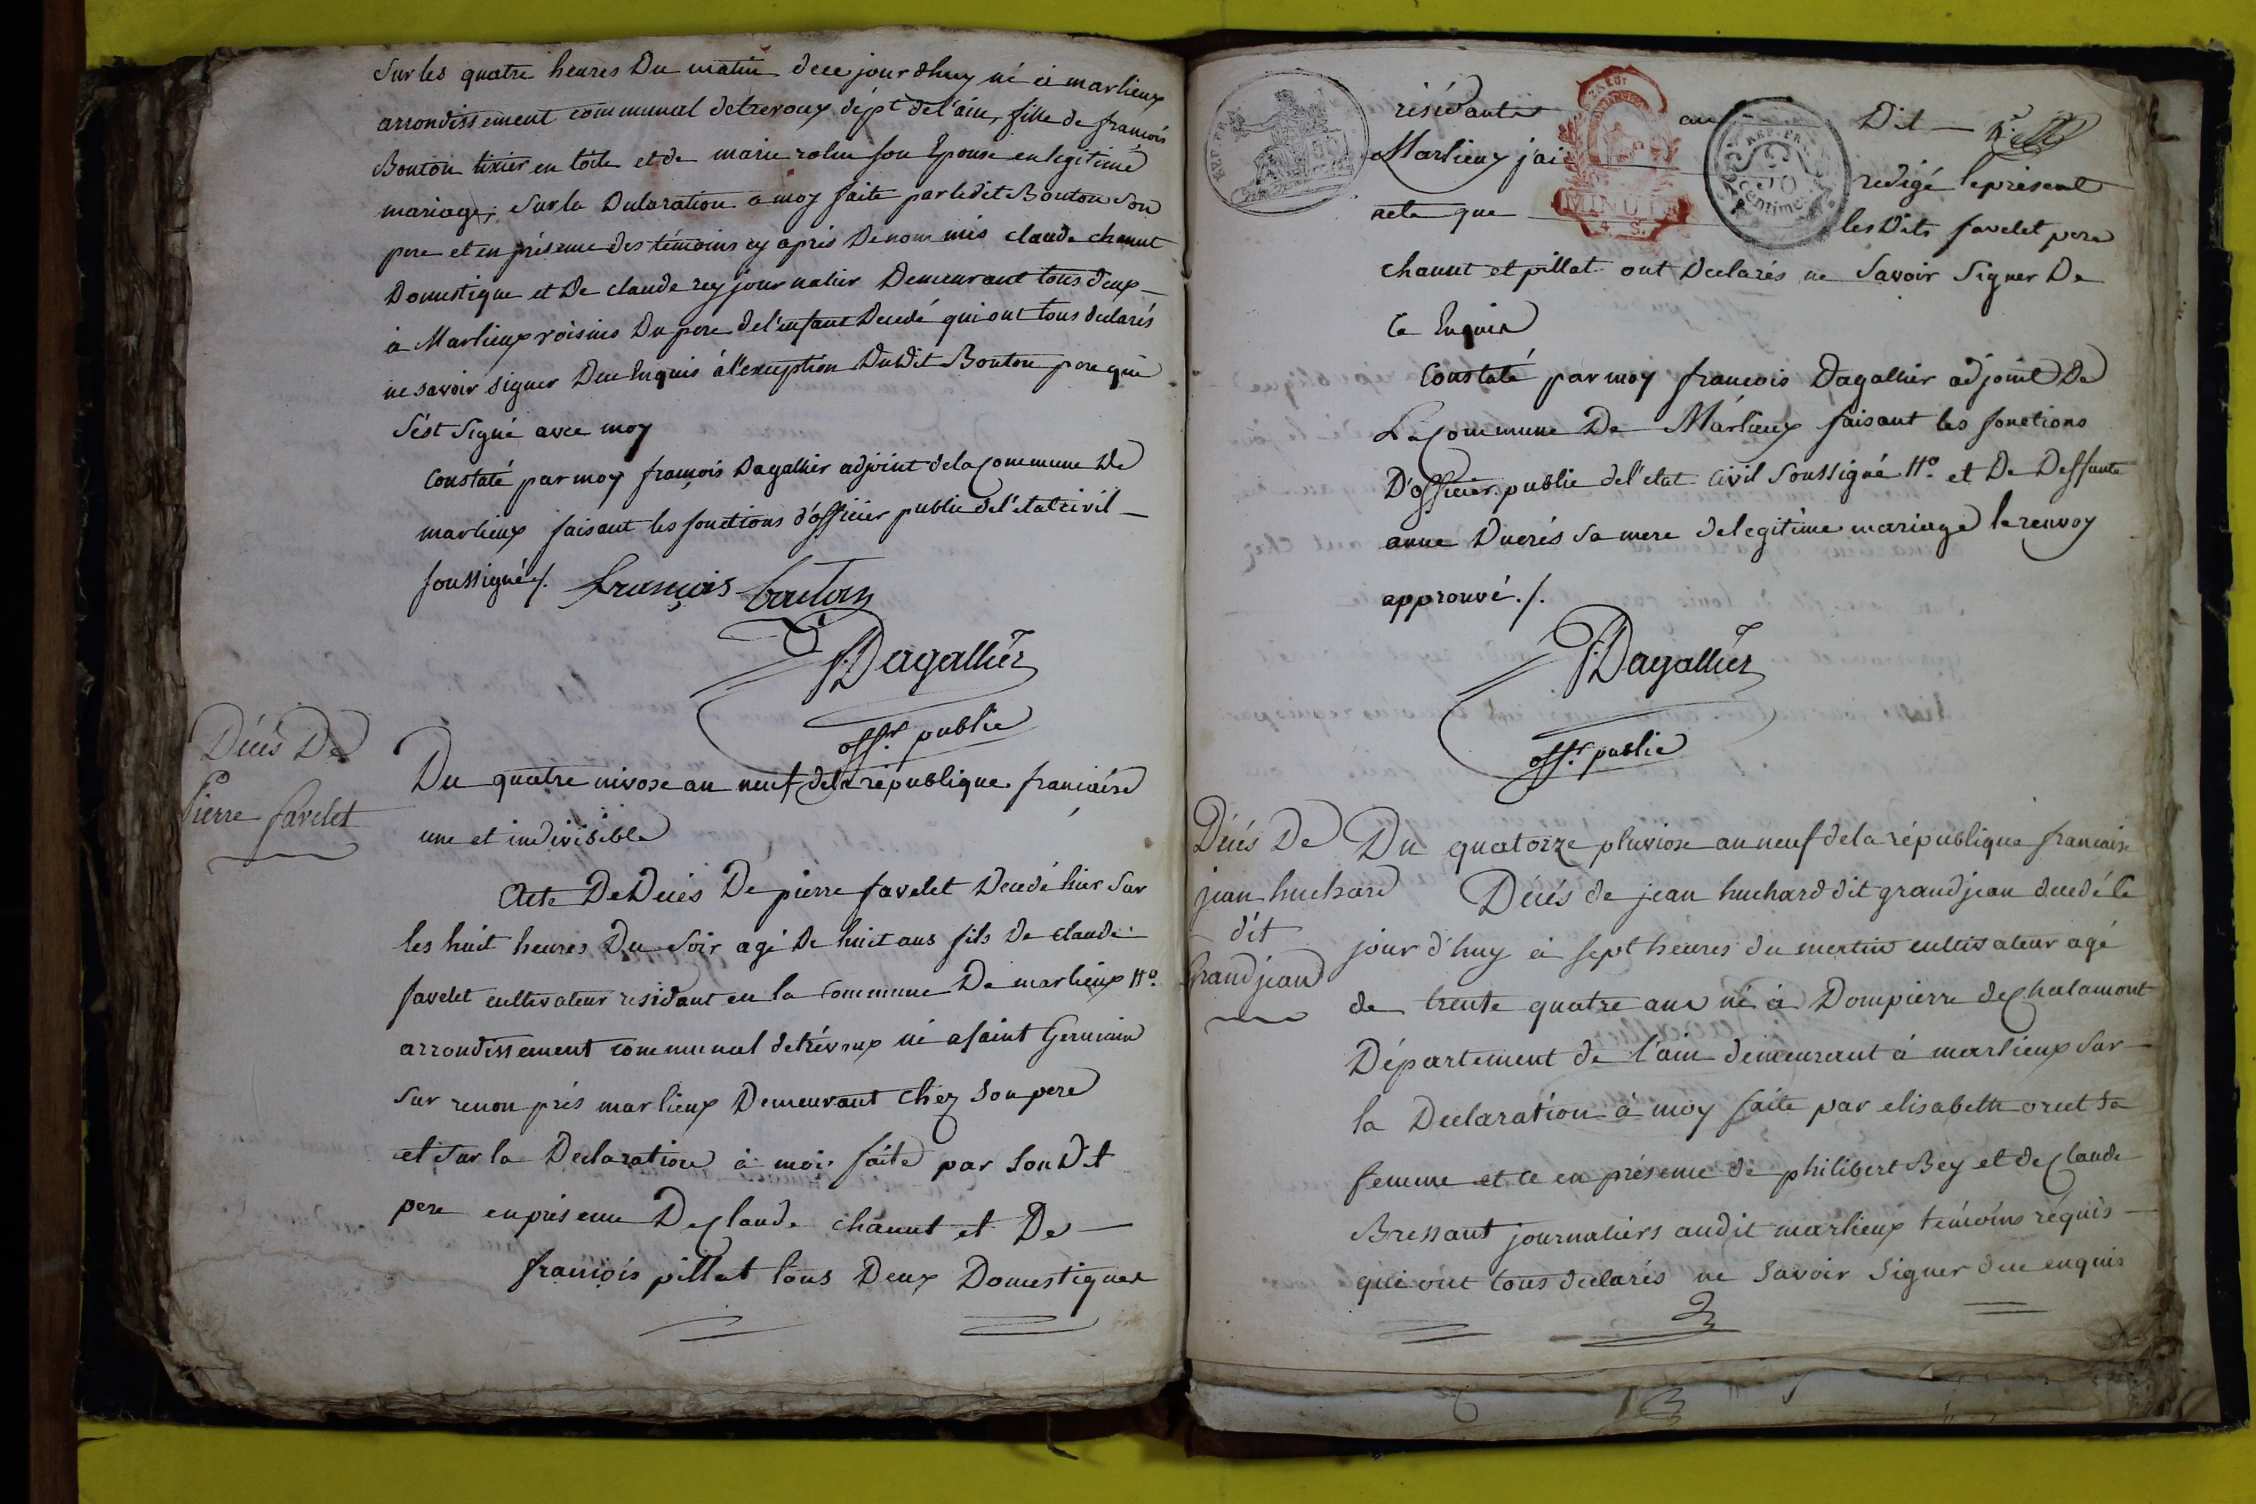 Sur les quatre heures Du matin dece jourdhuy né à marlieux
arrondissement communal detrevoux dépt. del'ain, fille de francois
Bouton tixier en toile et de marie rolin son Epouse en legitime
mariage, Sur la Declaration a moy faite par ledit Bouton son
pere et en présence des témoins cy après Denommés claude chanut
Domestique et De claude rey journalier Demeurant tous deux
à Marlieux voisins Du pere del'enfant Decedé qui ont tous declarés
ne savoir signer Dece Enquis à l'exception Dudit Bouton pere qui
s'est signé avec moy
Constaté par moy françois Dagallier adjoint dela commune De
marlieux faisant les fonctions d'officier public del'etat civil
soussigné ./.
françois bouton
f. Dagallier
offr. public
Décés De
Pierre favelet
Du quatre nivose an neuf dela république francaise
une et indivisible
Acte De Decés De pierre favelet Decedé hier Sur
les huit heures Du Soir agé De huit ans fils De Claude
favelet cultivateur residant en la commune De marlieux No.
arrondissement communal detrévoux né a saint Germain
Sur renon prés marlieux Demeurant chez Son pere
et Sur la Declaration à moi faite par Son Dit
pere en présence De claude chanut et De
francois pillat tous Deux Domestiques
REP. FRA.
résidants au Dit
Marlieux j'ai redigé le présent
acte que les Dits favelet pere
MINUTE
REP. FRA.
50
Centime
chanut et pillat ont Declarés ne Savoir Signer De
Ce Enquis
Constaté par moy francois Dagallier adjoint De
La Commune De Marlieux faisant les fonctions
D'officier public del'etat civil Soussigné No. et De Deffunte
anne Ducrés sa mere delegitime mariage le renvoy
approuvé ./.
f. Dagallier
offr. public
Décés De
jean huchard
dit
Grand jean
Du quatorze pluviose an neuf dela république francaise
Décés de jean huchard dit grand jean decedé le
jour d'huy à sept heures du matin cultivateur agé
de trente quatre ans né à Dompierre de chalamont
Département de l'ain demeurant à marlieux Sur
la Declaration à moy faite par elisabeth orcet Sa
femme et ce en présence de philibert Bey et de Claude
Bressant journaliers audit marlieux témoins réquis
qui ont tous declarés ne Savoir Signer dece enquis